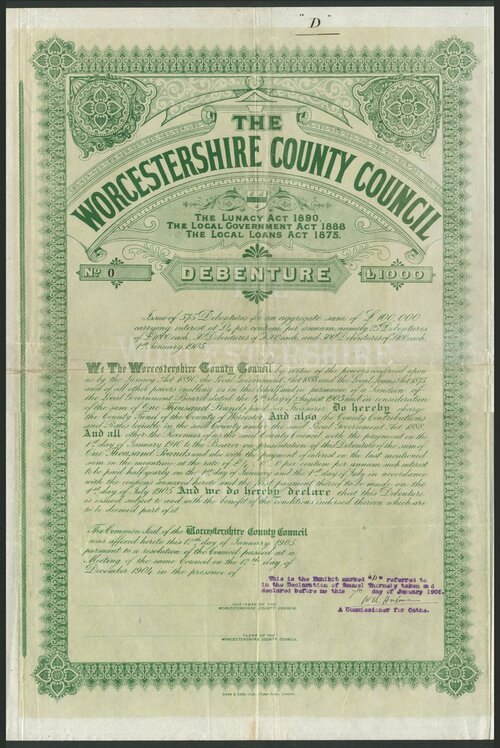 "D"
THE
WORCESTERSHIRE COUNTY COUNCIL
THE LUNACY ACT 1890.
THE LOCAL GOVERNMENT ACT 1888
THE LOCAL LOANS ACT 1875.
No 0
DEBENTURE
£1000
Issue of 575 Debentures for an aggregate sum of £100,000
carrying interest at £4 per centum per annum, namely 25 Debentures
of £1000 each, 50 Debentures of £500 each, and 500 Debentures of £100 each.
1st January, 1905
We The Worcestershire County Council by virtue of the powers conferred upon
us by the Lunacy Act 1890, the Local Government Act 1888 and the Local Loans Act 1875
and of all other powers enabling us in this behalf and in pursuance of a Sanction of
the Local Government Board dated the day of August 1903 and in consideration
of the sum of One Thousand Pounds paid our Treasurer Do hereby charge
the County Fund of the County of Worcester And also the County Contributions
and Rates leviable in the said County under the said Local Government Act 1888
And all other the Revenues of us the said County Council with the payment on the
1st day of January to the Bearer on presentation of this Debenture of the sum of
One Thousand Pounds and also with the payment of interest on the last mentioned
sum in the meantime at the rate of £4. 0. 0 per centum per annum such interest
to be paid half yearly on the 1st day of January and the 1st day of July in accordance
with the coupons annexed hereto and the first payment thereof to be made on the
1st day of July 1905 And we do hereby declare that this Debenture
is issued subject to and with the benefit of the conditions indorsed thereon which are
to be deemed part of it.
The Common Seal of the Worcestershire County Council
was affixed hereto this day of January 1905
pursuant to a resolution of the Council passed at a
Meeting of the same Council on the day of
December 1904 in the presence of
This is the Exhibit marked "D" referred to
in the Declaration of Samuel Thornely taken and
declared before me this 7th day of January 1905.
A Commissioner for Oaths.
CHAIRMAN OF THE
WORCESTERSHIRE COUNTY COUNCIL
CLERK OF THE
WORCESTERSHIRE COUNTY COUNCIL